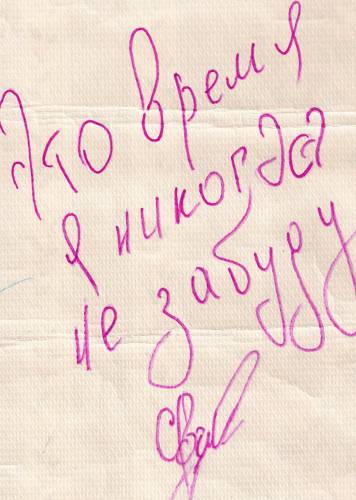 Это время
я никогда
не забуду